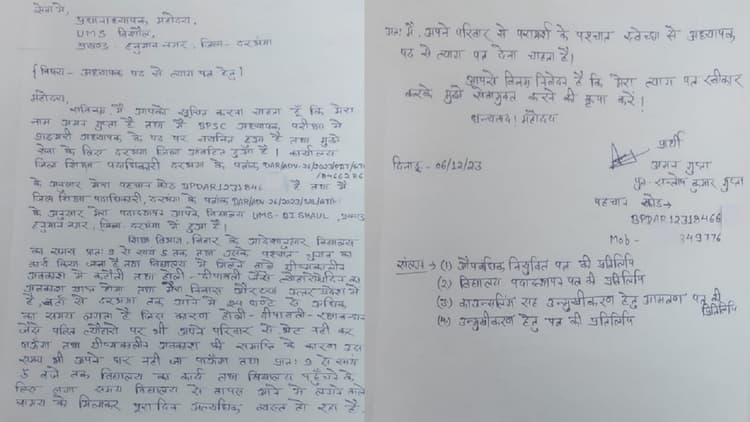 सेवा में,
प्रधानाध्यापक, महोदय,
UMS बिशौल,
प्रखण्ड हनुमान नगर, जिला- दरभंगा
{विषय- अध्यापक पद से त्याग पत्र हेतु}
महोदय,
सविनय, मैं आपको सूचित करना चाहता हूँ कि मेरा
नाम अमन गुप्ता है तथा मैं BPSC अध्यापक परीक्षा में
प्राइमरी अध्यापक के पद पर चयनित हुआ हूँ तथा मुझे
सेवा के लिए दरभंगा जिला आवंटित हुआ है। कार्यालय
जिला शिक्षा पदाधिकारी दरभंगा के पत्रांक
के अनुसार मेरा पहचान कोड BPDAR1231846 है तथा मैं
जिला शिक्षा पदाधिकारी, दरभंगा के पत्रांक
के अनुसार मेरा पदस्थापन आपने विद्यालय UMS-BISHAUL, प्रखण्ड
हनुमान नगर, जिला- दरभंगा में हुआ है।
शिक्षा विभाग, बिहार के आदेशानुसार विद्यालय
का समय प्रातः 9 से सायं 5 तक तथा उसके पश्चात
कार्य किया जाना है तथा विद्यालय में मिलने वाले ग्रीष्मकालीन
अवकाश में कटौती तथा होली- दीपावली जैसे त्योहारों
अवकाश प्राप्त होगा तथा मेरा निवास गोरखपुर उत्तर प्रदेश में
है, वहाँ से दरभंगा तक आने में 24 घण्टे से अधिक
का समय लगता है जिस कारण होली- दीपावली- रक्षाबन्धन
जैसे पवित्र त्योहारों पर भी अपने परिवार से भेंट नहीं कर
पाऊँगा तथा ग्रीष्मकालीन अवकाश की समाप्ति के कारण उस
समय भी अपने घर नहीं जा पाऊँगा तथा प्रातः 9 से सायं
5 बजे तक विद्यालय का कार्य तथा विद्यालय पहुँचने के
लिए लगा समय विद्यालय से वापस आने में लगने वाले
समय को मिलाकर पूरा दिन अत्यधिक व्यस्त हो रहा है
अतः मैं, अपने परिवार से परामर्श के पश्चात स्वेच्छा से अध्यापक
पद से त्याग पत्र देना चाहता हूँ।
आपसे विनम्र निवेदन है कि मेरा त्याग पत्र स्वीकार
करके मुझे सेवामुक्त करने की कृपा करें।
धन्यवाद! महोदय
प्रार्थी
दिनांक- 06/12/23
अमन गुप्ता
पुत्र- सन्तोष कुमार गुप्ता
पहचान कोड-
BPDAR12318466
Mob -
349776
संलग्न → (1) औपबंधिक नियुक्ति पत्र की प्रतिलिपि
(2) विद्यालय पदस्थापन पत्र की प्रतिलिपि
(3) काउन्सलिंग सह उन्मुखीकरण हेतु आमंत्रण पत्र की प्रतिलिपि
(4) उन्मुखीकरण हेतु पत्र की प्रतिलिपि